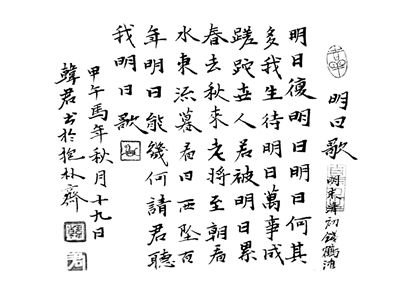 明日歌
明末清初錢鶴灘
明日復明日明日何其
多我生待明日萬事成
蹉跎世人若被明日累
春去秋來老將至朝看
水東流暮看日西墜百
年明日能幾何請君聽
我明日歌
甲午馬年秋月十九日
韓君书於抱林齋